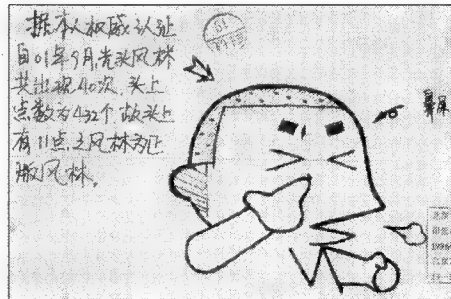 据本人权威认证
自01年9月,光头风林
共出现40次,头上
点数为432个,故头上
有11点之风林为正
版风林。